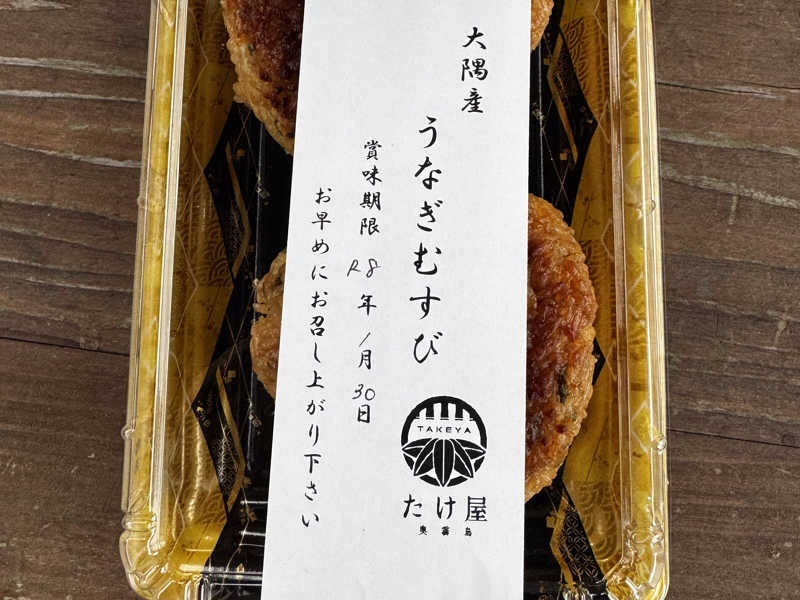 大隅産
うなぎむすび
賞味期限 R8年1月30日
お早めにお召し上がり下さい
TAKEYA
たけ屋
奥霧島